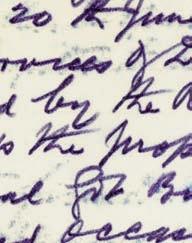 20 th June
rvices of
d by the
s the prop
al
d occas